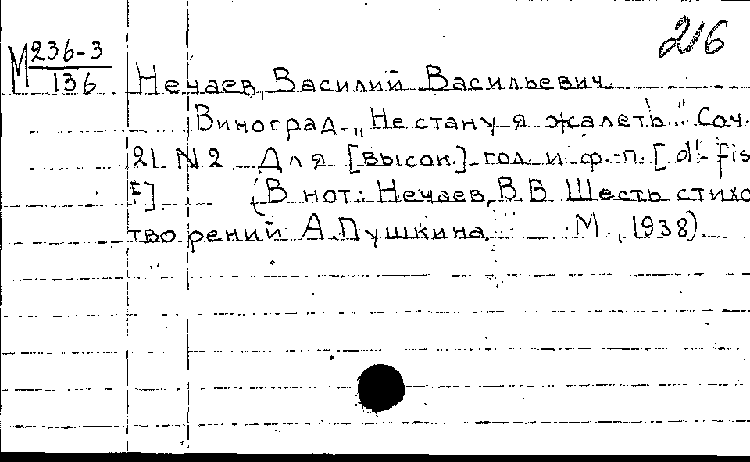 216
М 236-3
136
Нечаев, Василий Васильевич.
Виноград. „Не стану я жалеть". Соч.
21 N2 Для [высок.] гол. и ф.-п. [d'-fis
F]. (В нот: Нечаев, В.В. Шесть стихо
творений А.Пушкина. М., 1938).